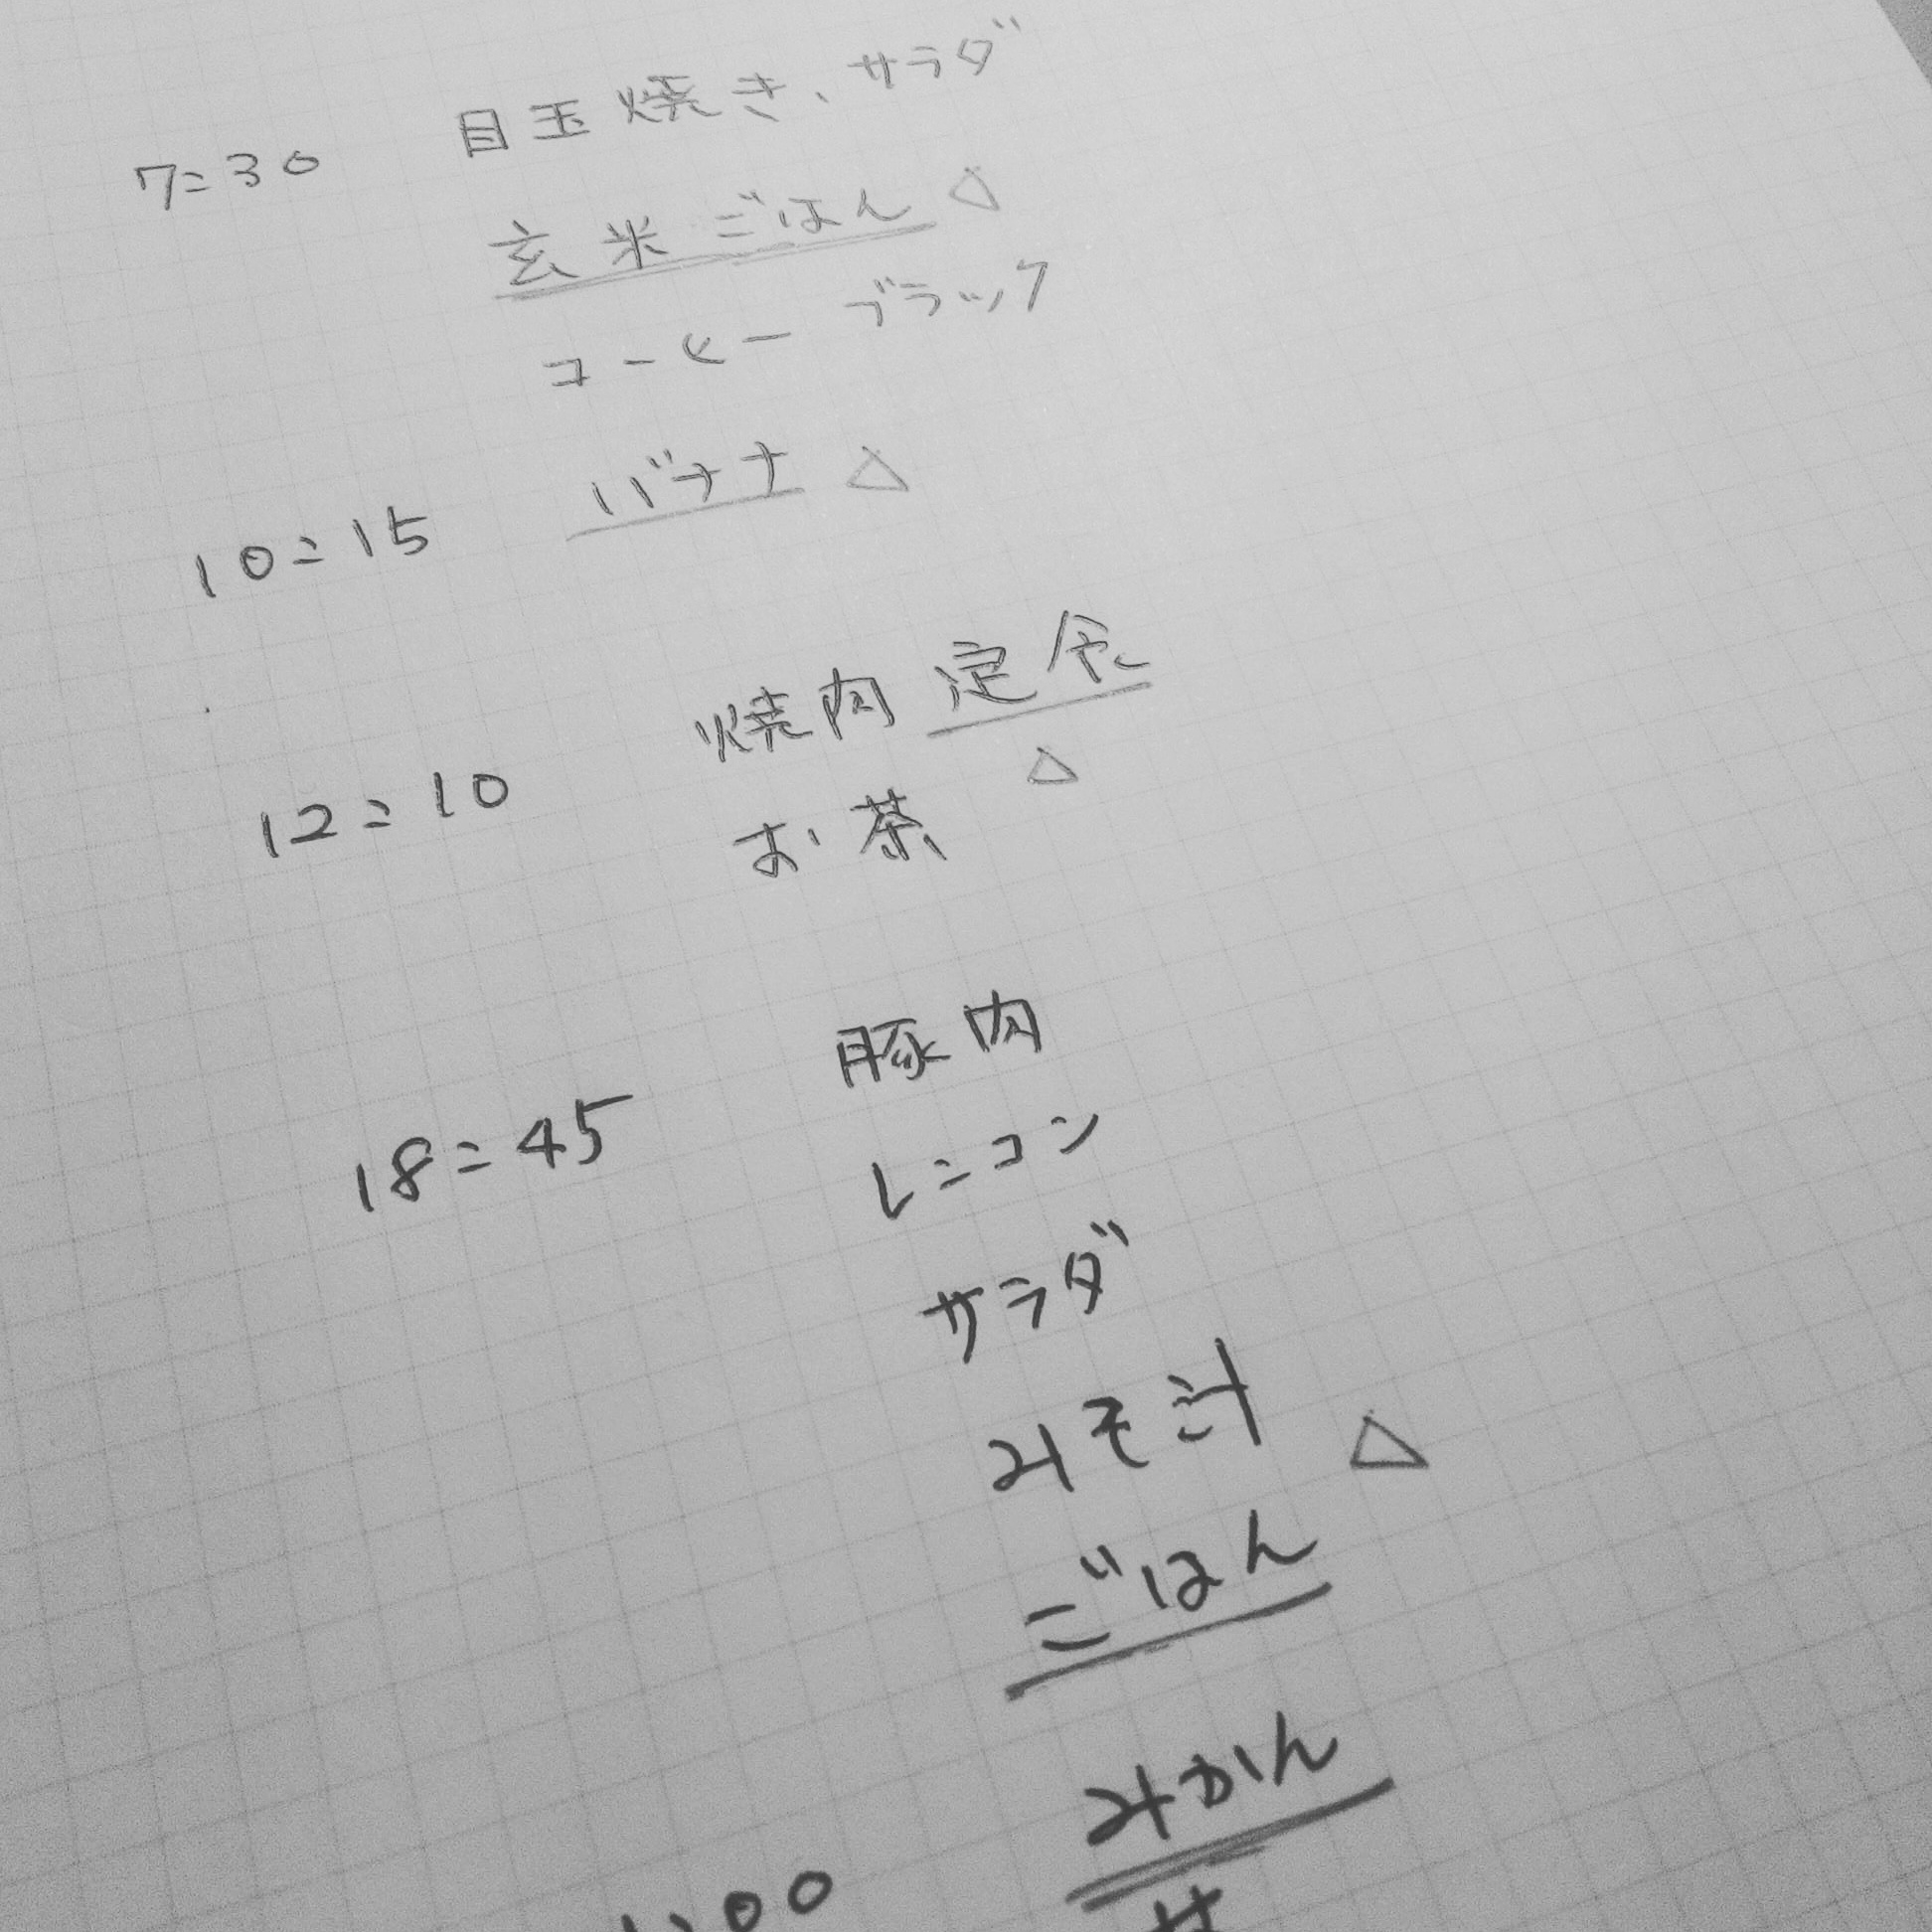 7:30 目玉焼き、サラダ
玄米ごはん △
コーヒー ブラック
10:15 バナナ △
12:10 焼肉定食
△
お茶
18:45 豚肉
レンコン
サラダ
みそ汁
△
ごはん
みかん
:00